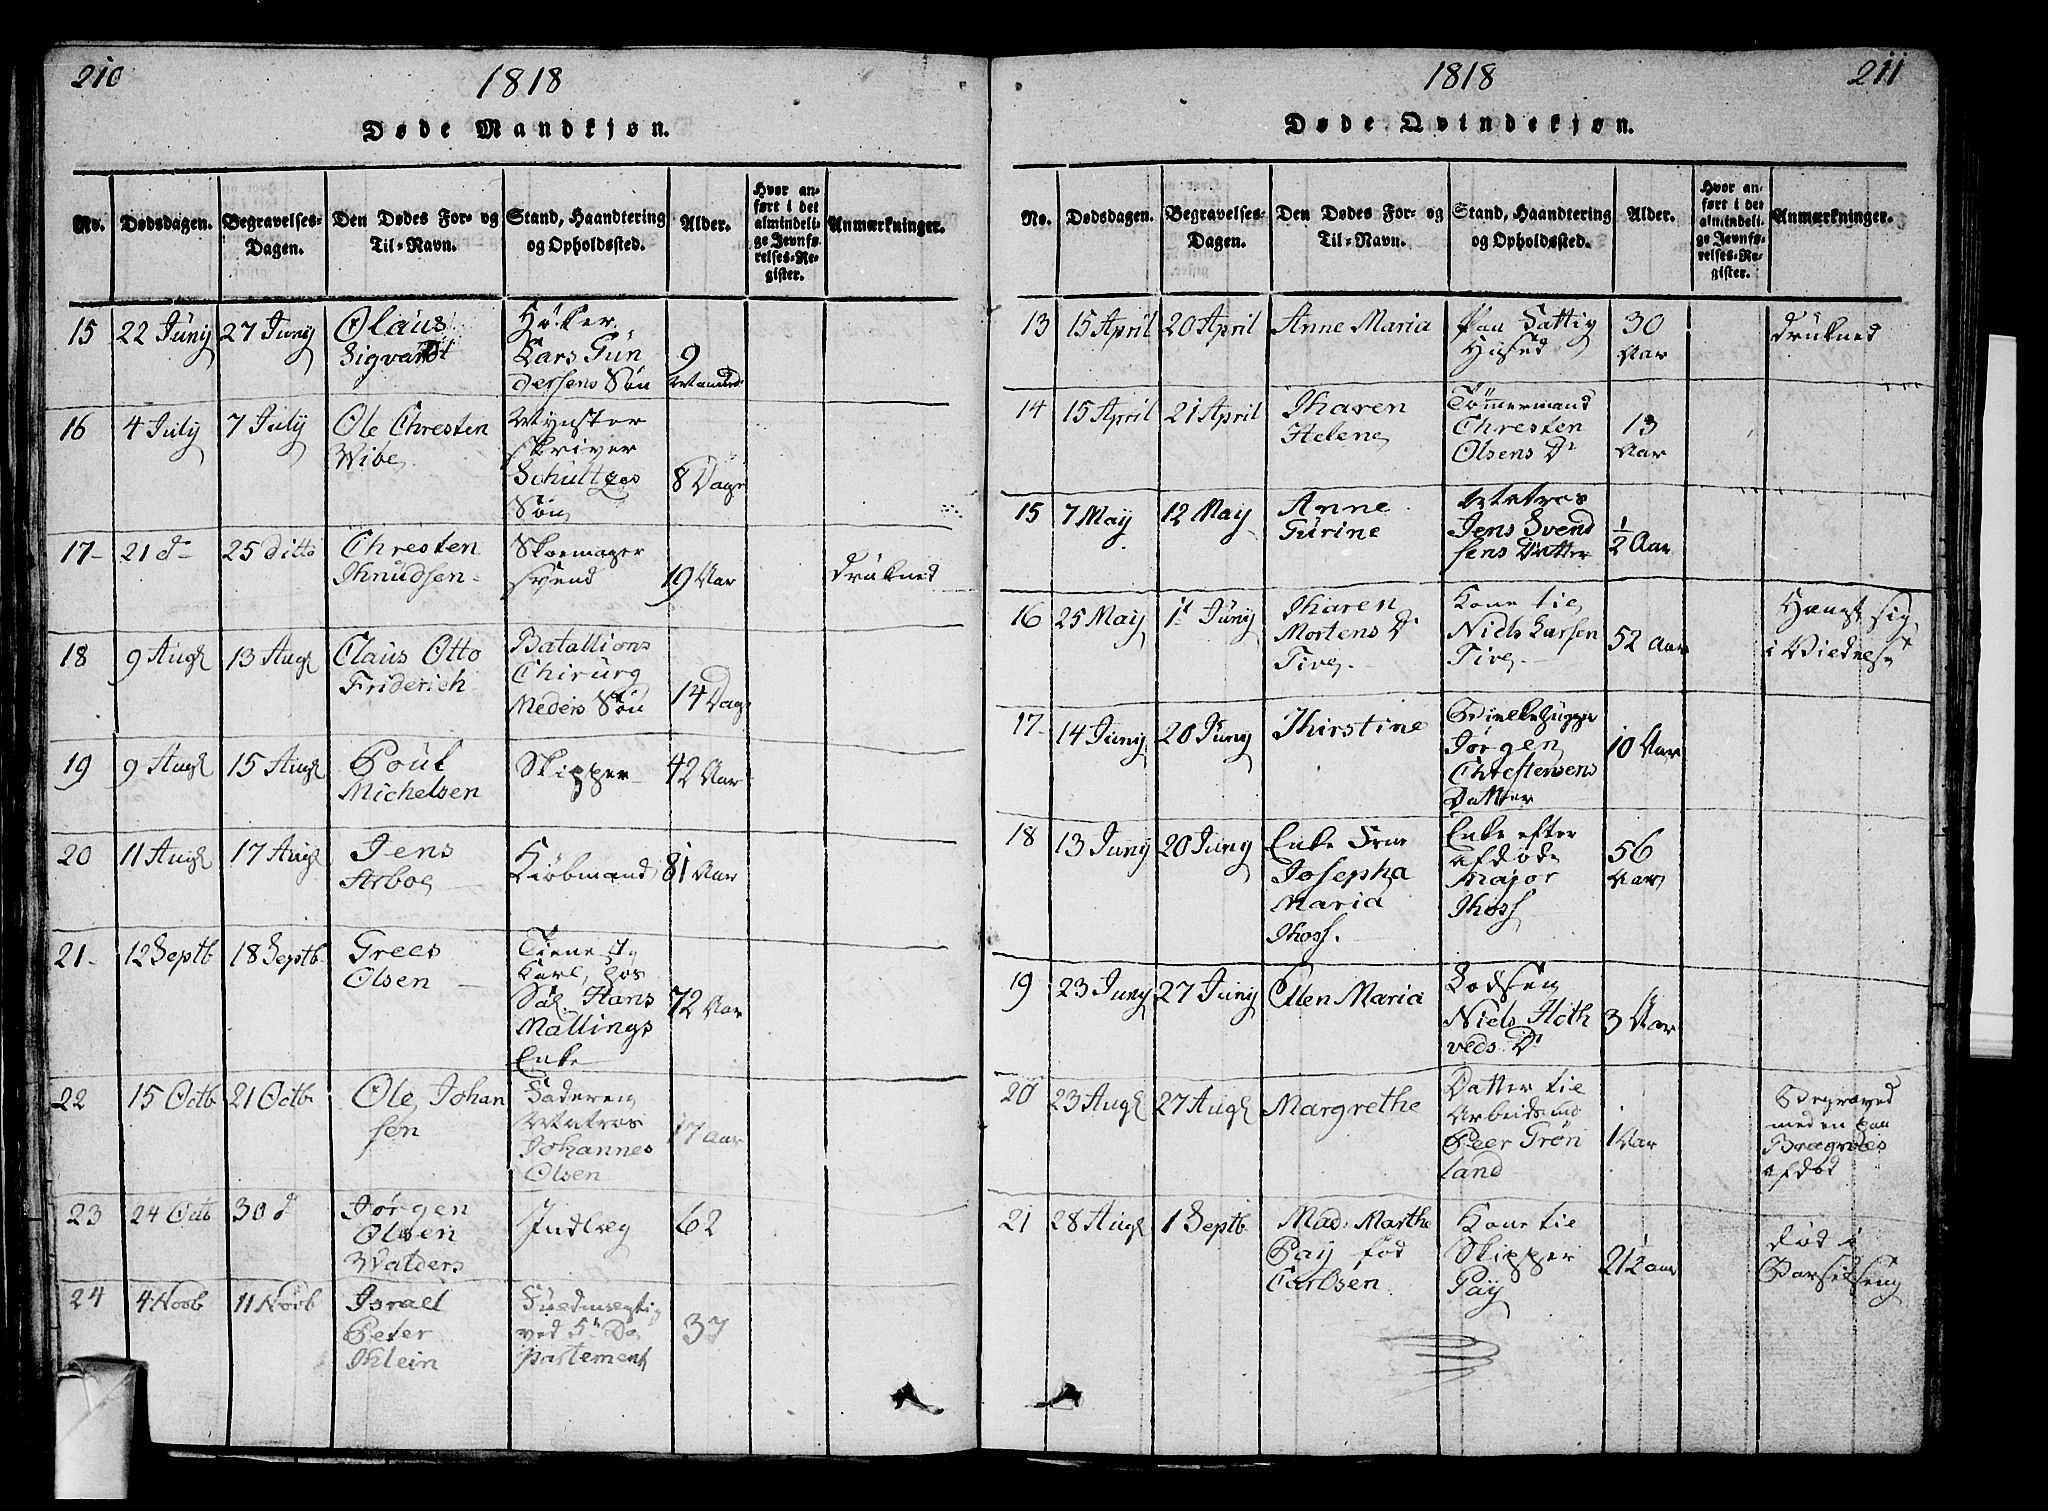 210
1818
Døde Mandkjøn.
No.
Dødsdagen.
Begravelses-
Dagen.
Den Dødes For- og
Til-Navn.
Stand, Haandtering
og Opholdssted.
Alder.
Hvor an-
ført i det
almindeli-
ge Jevnfø-
relses-Re-
gister.
Anmærkninger.
15
22 Juny
27 Juny
Olaus
Sigvardt
Høker
Lars Gun
dersens Søn
9
16
4 July
7 July
Ole Chresten
Wibe
Mynster
skriver
Schultzes
Søn
8 Dage
17
21 d
25 Ditto
Chresten
Knudsen
Skoemager
svend
19 Aar
drukned
18
9 Augs
13 Augs
Claus Otto
Friderich
Batallions
Chirurg
Meders Søn
14 Dag
19
9 Augs
15 Augs
Poul
Michelsen
Skipper
42 Aar
20
11 Augs
17 Augs
Jens
Arboe
Kiøbmand
81 Aar
21
12 Septb
18 Septb
Grees
Olsen
Karl, hos
Sal. Hans
Mallings
Enke
72 Aar
22
15 Octb
21 Octb
Ole Johan
sen
Faderen
Matros
Johannes
Olsen
17 aar
23
24 Octb
30 d
Jørgen
Olsen
Walders
Indlæg
62
24
4 Novb
11 Novb
Israel
Peter
Klein
Fuldmægtig
ved 5te De
partement
37
1818
211
Døde Qvindekjøn.
No.
Dødsdagen.
Begravelses-
Dagen.
Den Dødes For- og
Til-Navn.
Stand, Haandtering
og Opholdssted.
Alder.
Hvor an-
ført i det
almindeli-
ge Jevnfø-
relses-Re-
gister.
Anmærkninger.
13
15 April
20 April
Anne Maria
paa Fattig
Huset
30
Aar
drukned
14
15 April
21 April
Karen
Helene
Tømmermand
Chresten
Olsens Dr
13
Aar
15
7 May
12 May
Anne
Gurine
Matros
Jens Svend
sens Datter
1/2 Aar
16
25 May
1t Juny
Karen
Mortens Dr
Tive
Kone til
Niels Larsen
Tive
52 Aar
Hængt sig
17
14 Juny
20 Juny
Kirstine
Jørgen
Christensens
Datter
10 Aar
18
13 Juny
20 Juny
Enke Frue
Josepha
Maria
Koss.
Enke efter
afdøde
Major
Koss
56
Aar
19
23 Juny
27 Juny
Ellen Maria
Lodsen
Niels Hoth
veds Dr
3 Aar
20
23 Augs
27 Augs
Margrethe
Datter til
Arbeidsmd
Peer Grøn
land
1 Aar
Begraved
med en paa
Bragnæs
afdød
21
28 Augs
1 Septb
Mad. Marthe
Pay fød
Carlsen
Kone til
Skipper
Pay
21 1/2 aar
død i
Barselseng